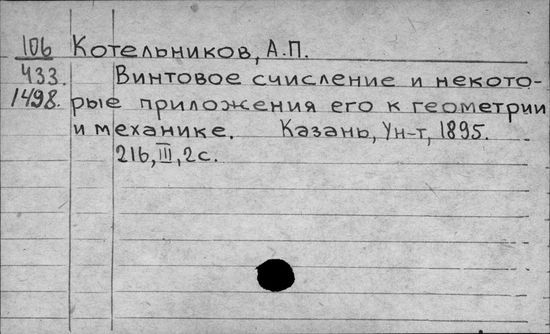 106 Котельников, А.П.
433. Винтовое счисление и некото-
1498. рые приложения его к геометрии
и механике. Казань, Ун-т, 1895.
216, III, 2 с.